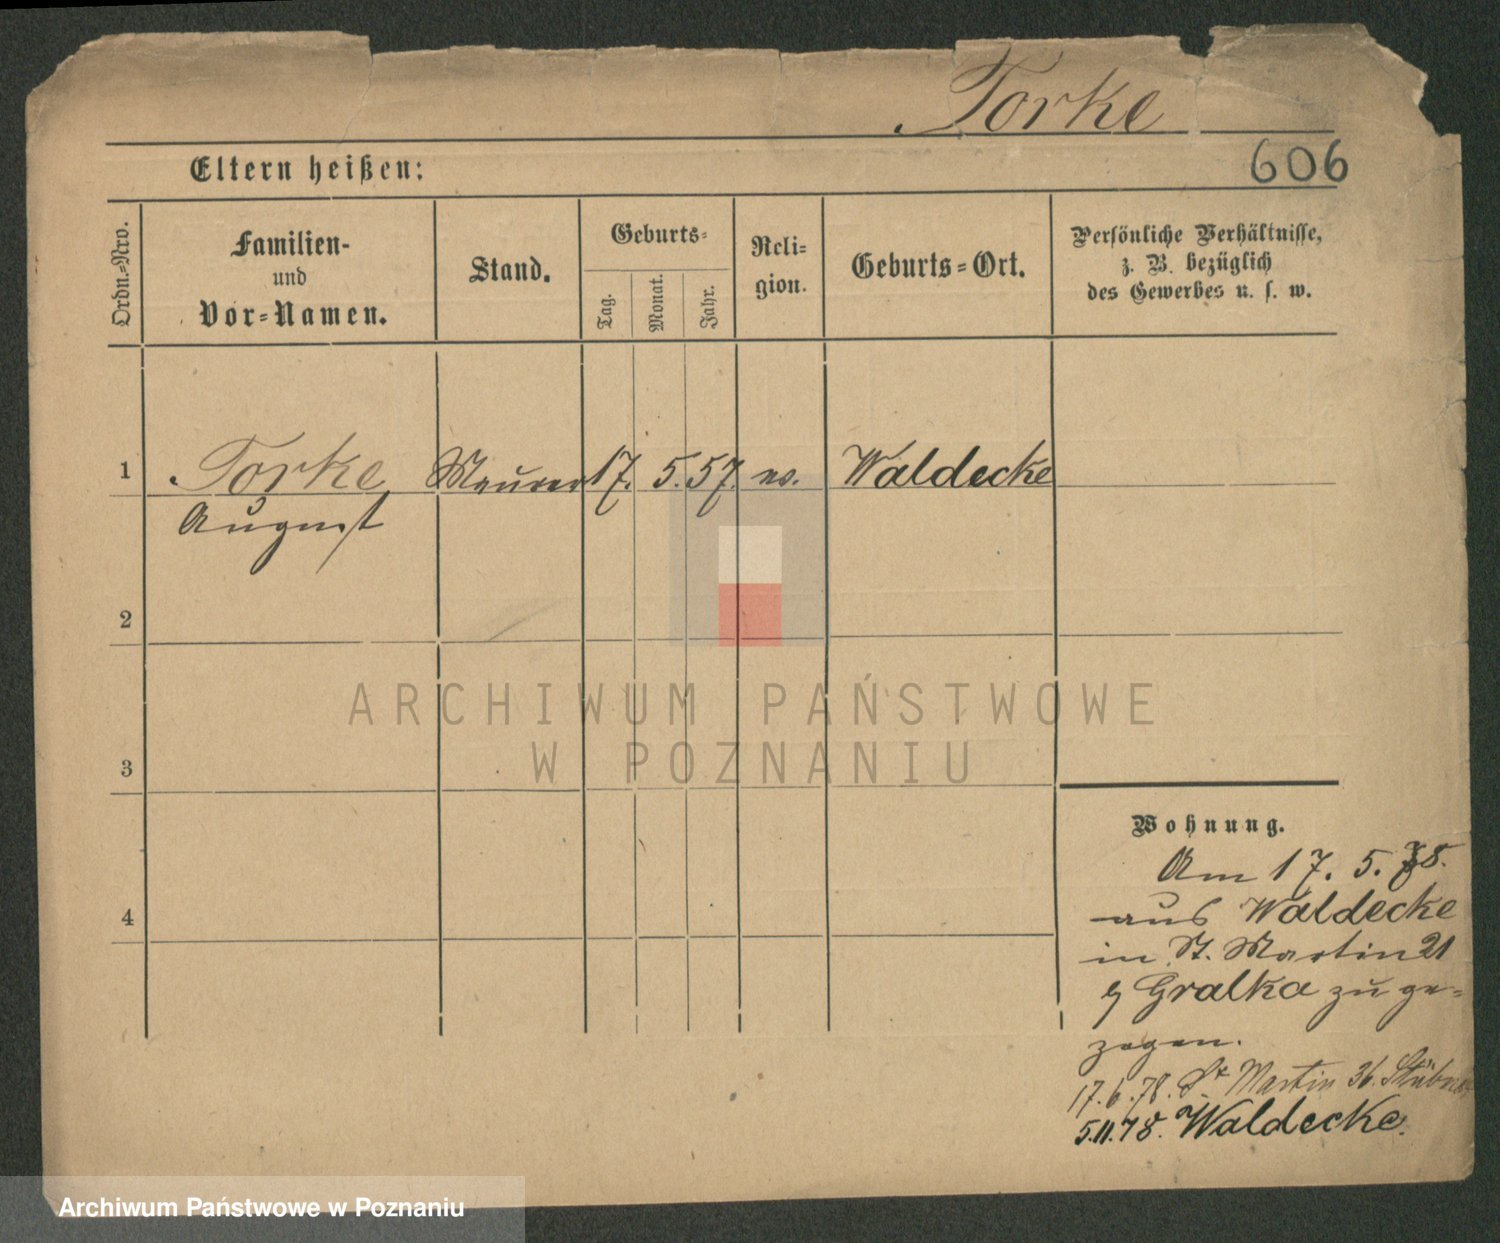 Torke
606
Eltern heißen:
Ordn.=Nro.
Familien-
und
Vor=Namen.
Stand.
Geburts=
Tag.
Monat.
Jahr.
Reli-
gion.
Geburts=Ort.
Persönliche Verhältnisse,
z. B. bezüglich
des Gewerbes u. s. w.
1 Torke Maurer 17. 5. 57. ev. Waldecke
August
2
3
4
ARCHIWUM PAŃSTWOWE
W POZNANIU
Wohnung.
Am 17. 5. 78.
aus Waldecke
in St. Martin 21
Gralka zu ge=
zogen.
17.6.78. St Martin 36.
5.11.78. Waldecke.
Archiwum Państwowe w Poznaniu